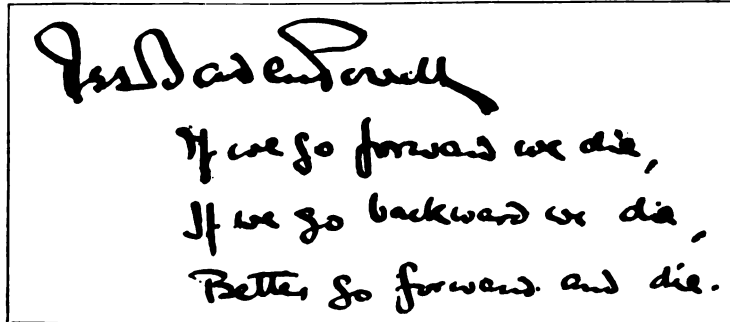 RSS Baden Powell
If we go forward we die,
If we go backward we die,
Better go forward and die.